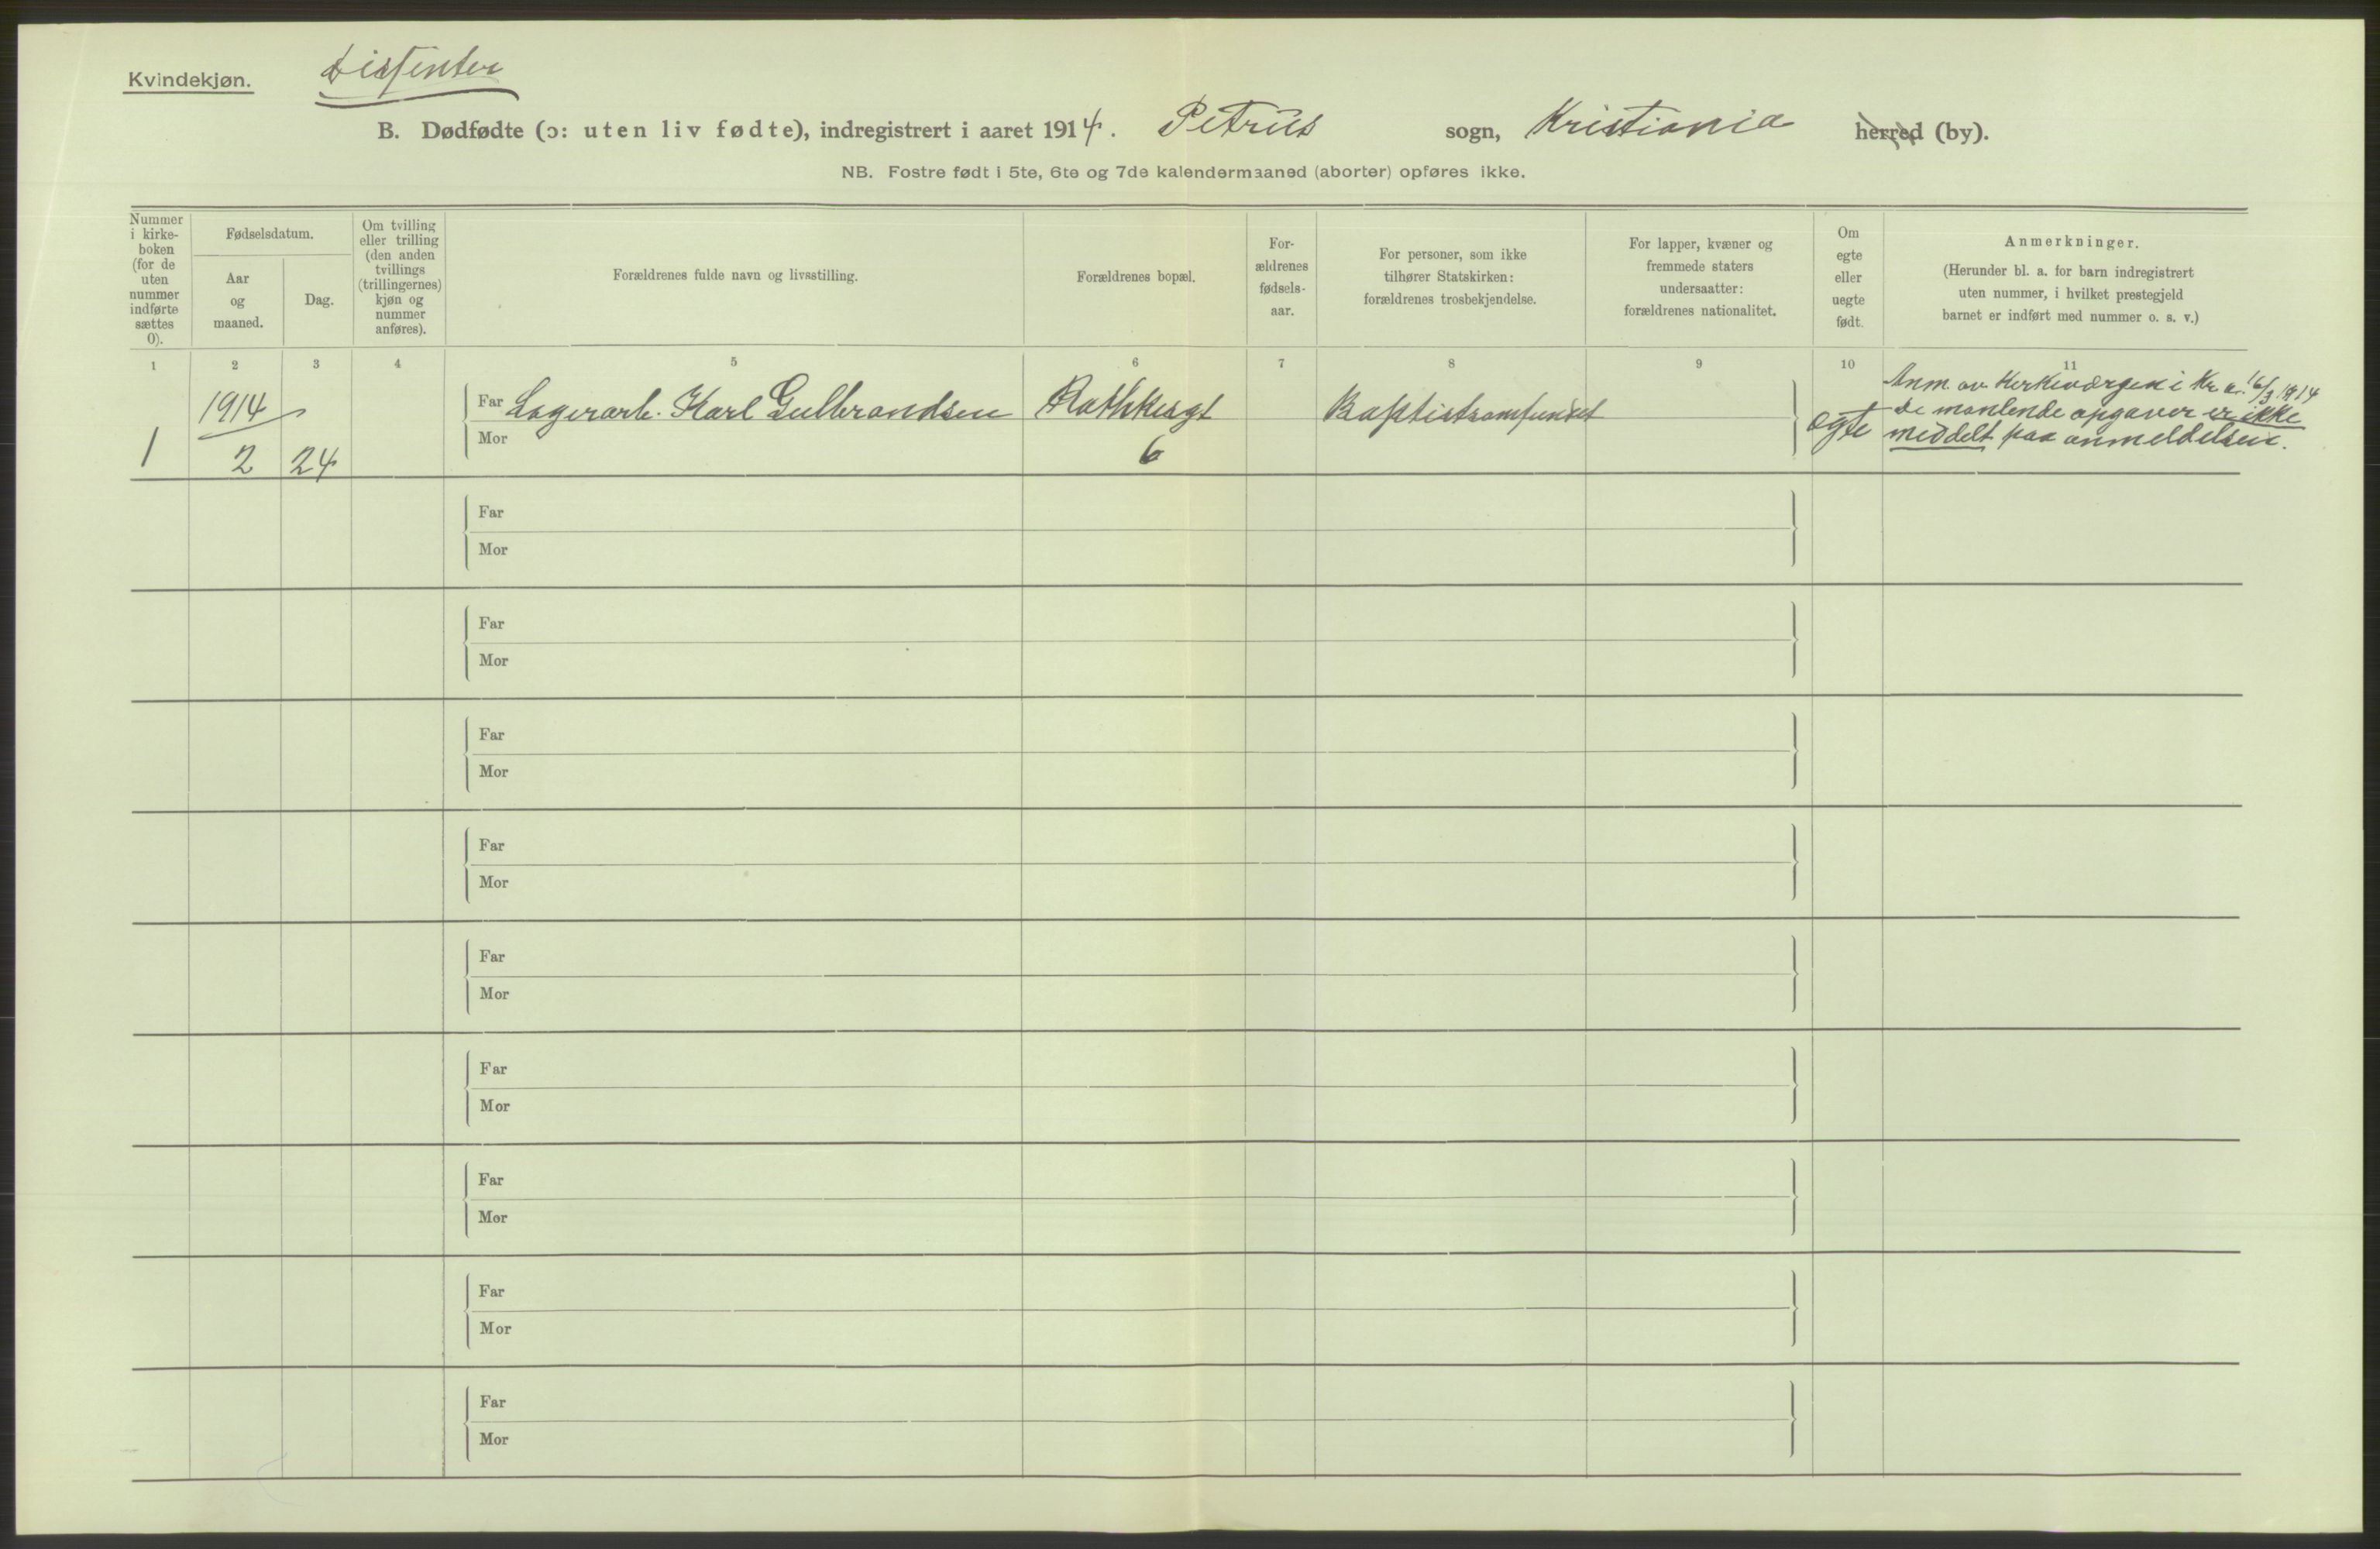 Kvindekjøn.
Dissenter
B. Dødfødte (ɔ: uten liv fødte), indregistrert i aaret 1914. Petrus sogn, Kristiania herred (by).
NB. Fostre født i 5te, 6te og 7de kalendermaaned (aborter) opføres ikke.
Nummer
i kirke-
boken
(for de
uten
nummer
indførte
sættes
0).
Fødselsdatum.
Aar
og
maaned.
Dag.
Om tvilling
eller trilling
(den anden
tvillings
(trillingernes)
kjøn og
nummer
anføres).
Forældrenes fulde navn og livsstilling.
Forældrenes bopæl.
For-
ældrenes
fødsels-
aar.
For personer, som ikke
tilhører Statskirken:
forældrenes trosbekjendelse.
For lapper, kvæner og
fremmede staters
undersaatter:
forældrenes nationalitet.
Om
egte
eller
uegte
født.
Anmerkninger.
(Herunder bl. a. for barn indregistrert
uten nummer, i hvilket prestegjeld
barnet er indført med nummer o. s. v.)
1 2 3 4 5 6 7 8 9 10 11
1
1914
2 24
Far Lagerarb. Karl Gulbrandsen
Mor
Rathkesgt
6
Baptistsamfundet
egte
Anm. av Kirkeværgen i Kr.a. 16/3 1914
De manlende opgaver er ikke
meddelt paa anmeldelsen.
Far
Mor
Far
Mor
Far
Mor
Far
Mor
Far
Mor
Far
Mor
Far
Mor
Far
Mor
Far
Mor